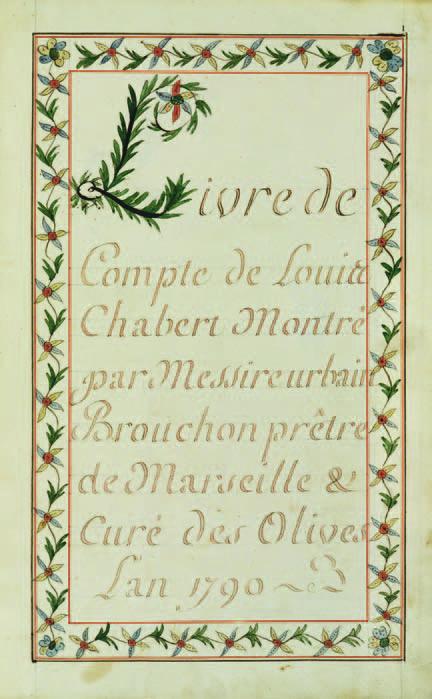 Livre de
Compte de Louise
Chabert Montré
par Messire urbain
Brouchon prêtre
de Marseille &
Curé des Olives
L'an 1790